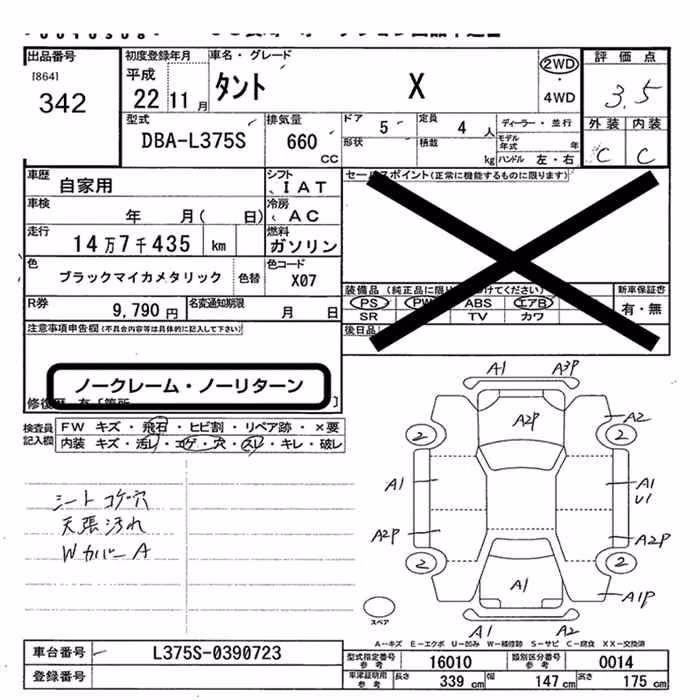 出品番号
[864]
342
初度登録年月
平成
22 11 月
車名・グレード
タント X
2WD
・
4WD
評価点
3.5
外装 内装
C C
型式
DBA-L375S
排気量
660 CC
ドア 5
形状
定員 4 人
積載 kg
ディーラー・並行
モデル年式 年
ハンドル 左・右
車歴
自家用
シフト
IAT
セールスポイント(正常に機能するものに限ります)
車検
年 月( 日)
冷房
AC
走行
14万7千435 km
燃料
ガソリン
色
ブラックマイカメタリック 色替
色コード
X07
装備品
PS PW ABS エアB
SR TV カワ
新車保証書
有・無
R券
9,790 円
名変通知期限
月 日
後日品
注意事項申告欄(不具合内容等は具体的に記入して下さい)
ノークレーム・ノーリターン
検査員記入欄
FW キズ・飛石・ヒビ割・リペア跡・×要
内装 キズ・汚レ・コゲ・穴・スレ・キレ・破レ
シート コゲ穴
天張汚れ
Wカバー A
A1 A3P
A2P A2
2 2
A1 A1
U1
A2P A2P
2 2
A1 A1P
A1 A2
スペア
A-キズ E-エクボ U-凹み W-補修跡 S-サビ C-腐食 XX-交換済
車台番号
L375S-0390723
登録番号
型式指定番号
参考
16010
類別区分番号
参考
0014
車庫証明用
参考
長さ 339 cm
幅 147 cm
高さ 175 cm